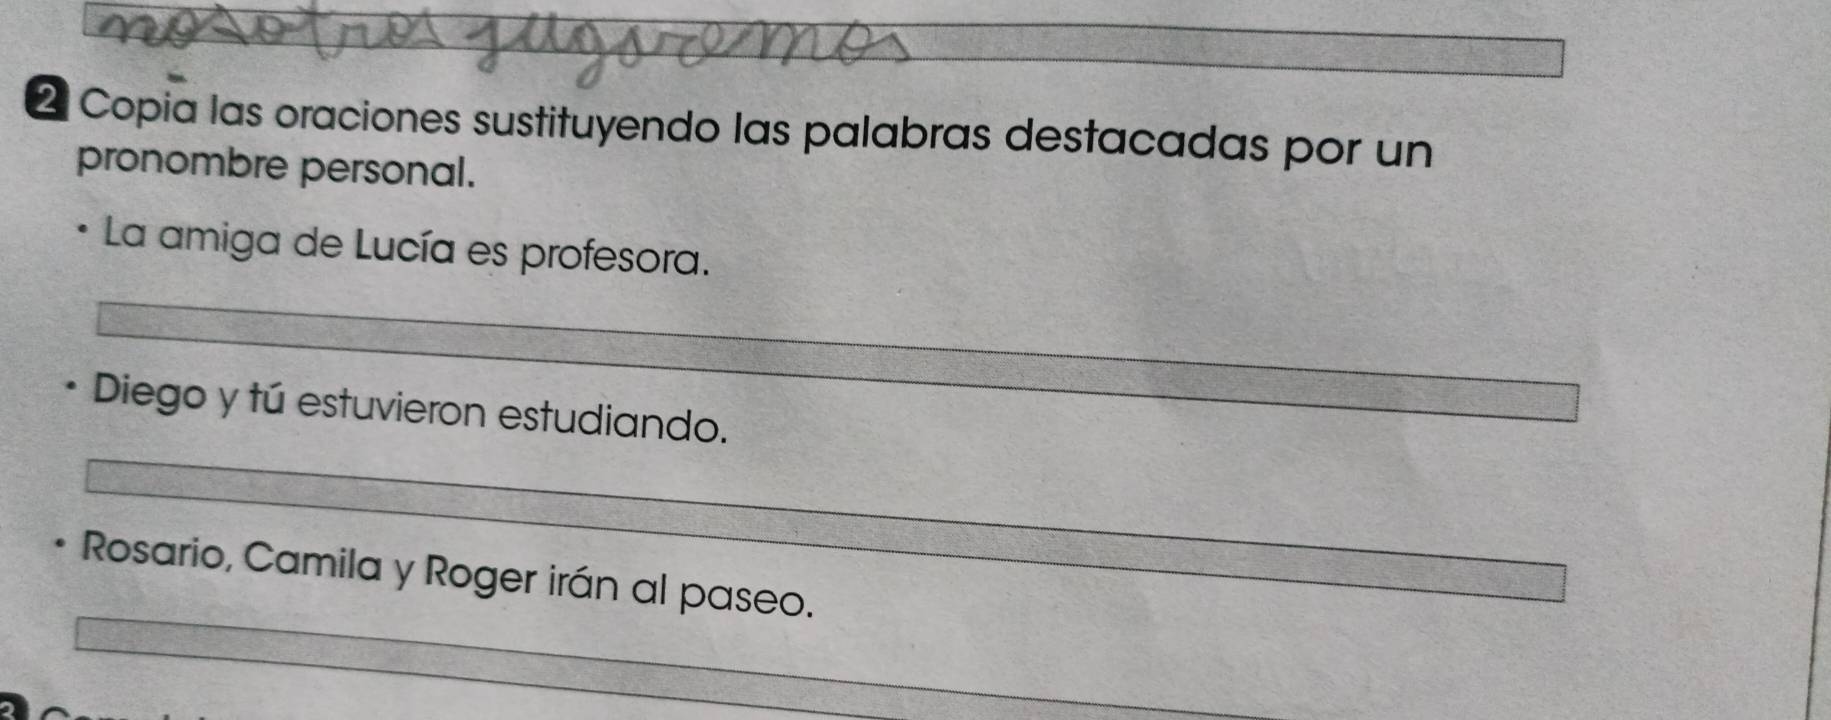 nosotros jugaremos
2 Copia las oraciones sustituyendo las palabras destacadas por un
pronombre personal.
• La amiga de Lucía es profesora.
• Diego y tú estuvieron estudiando.
• Rosario, Camila y Roger irán al paseo.
3